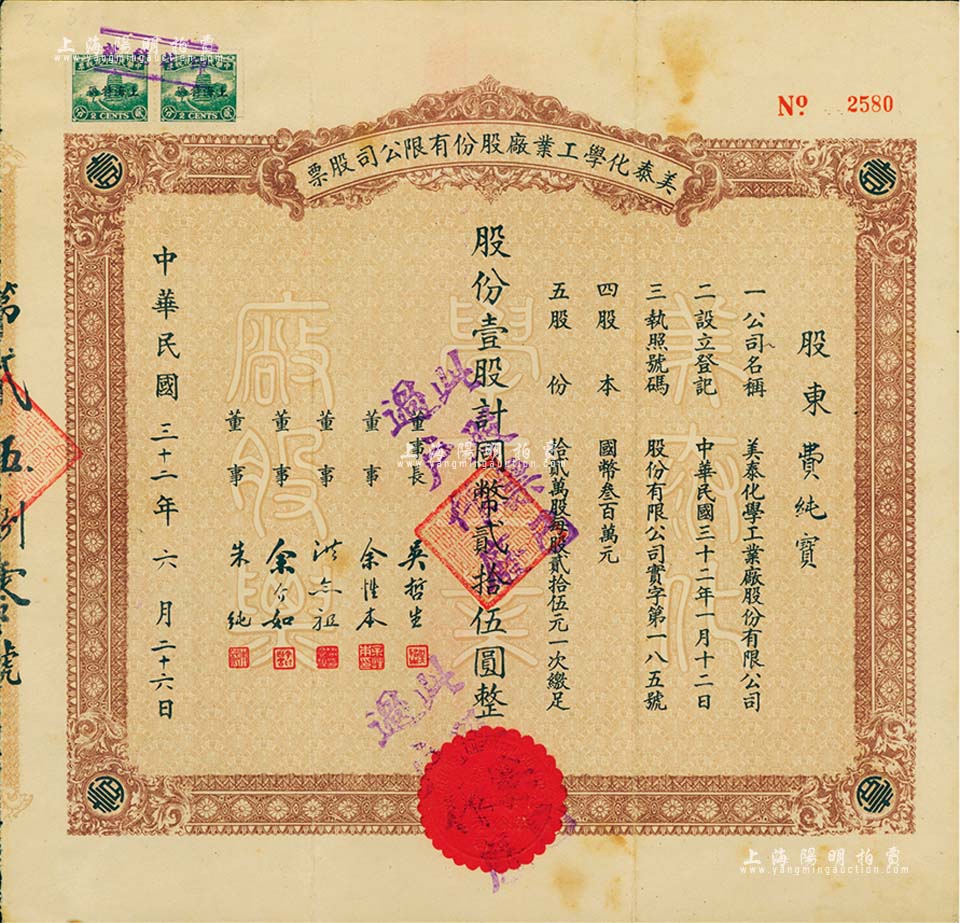 上海陽明拍賣
www.yangmingauction.com
2 CENTS
2 CENTS
Nº 2580
美泰化學工業廠股份有限公司股票
股東 費純寶
一公司名稱 美泰化學工業廠股份有限公司
二設立登記 中華民國三十二年一月十二日
三執照號碼 股份有限公司實字第一八五號
四股本 國幣叁百萬元
五股份 拾貳萬股每股貳拾伍元一次繳足
股份壹股計國幣貳拾伍圓整
董事長 吳哲生
董事 余性本
董事 洪念祖
董事
董事 朱純
中華民國三十二年六月二十六日
上海陽明拍賣
www.yangmingauction.com
上海陽明拍賣
www.yangmingauction.com